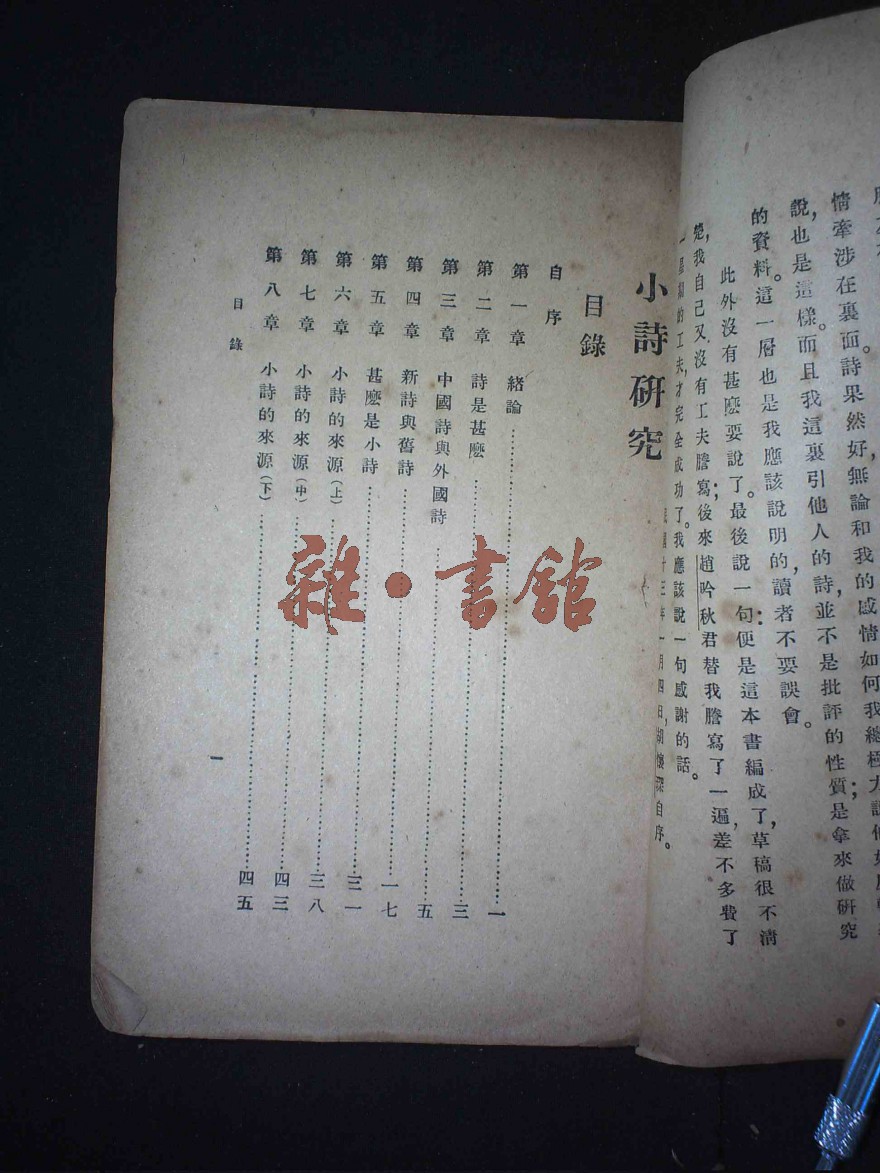 情牽涉在裏面。詩果然好，無論和我的感情如何，我總極力
說，也是這樣。而且我這裏引他人的詩，並不是批評的性質；是拿來做研究
的資料。這一層也是我應該說明的，讀者不要誤會。
此外沒有甚麽要說了。最後說一句：便是這本書編成了，草稿很不清
楚，我自己又沒有工夫謄寫；後來趙吟秋君替我謄寫了一遍，差不多費了
一星期的工夫，才完全成功了。我應該說一句感謝的話。
民國十三年一月四日，胡懷琛自序。
小詩研究
目錄
自序
第一章 緒論……一
第二章 詩是甚麽……三
第三章 中國詩與外國詩……五
第四章 新詩與舊詩……一七
第五章 甚麽是小詩……三一
第六章 小詩的來源(上)……三八
第七章 小詩的來源(中)……四三
第八章 小詩的來源(下)……四五
目錄
一
雜·書館